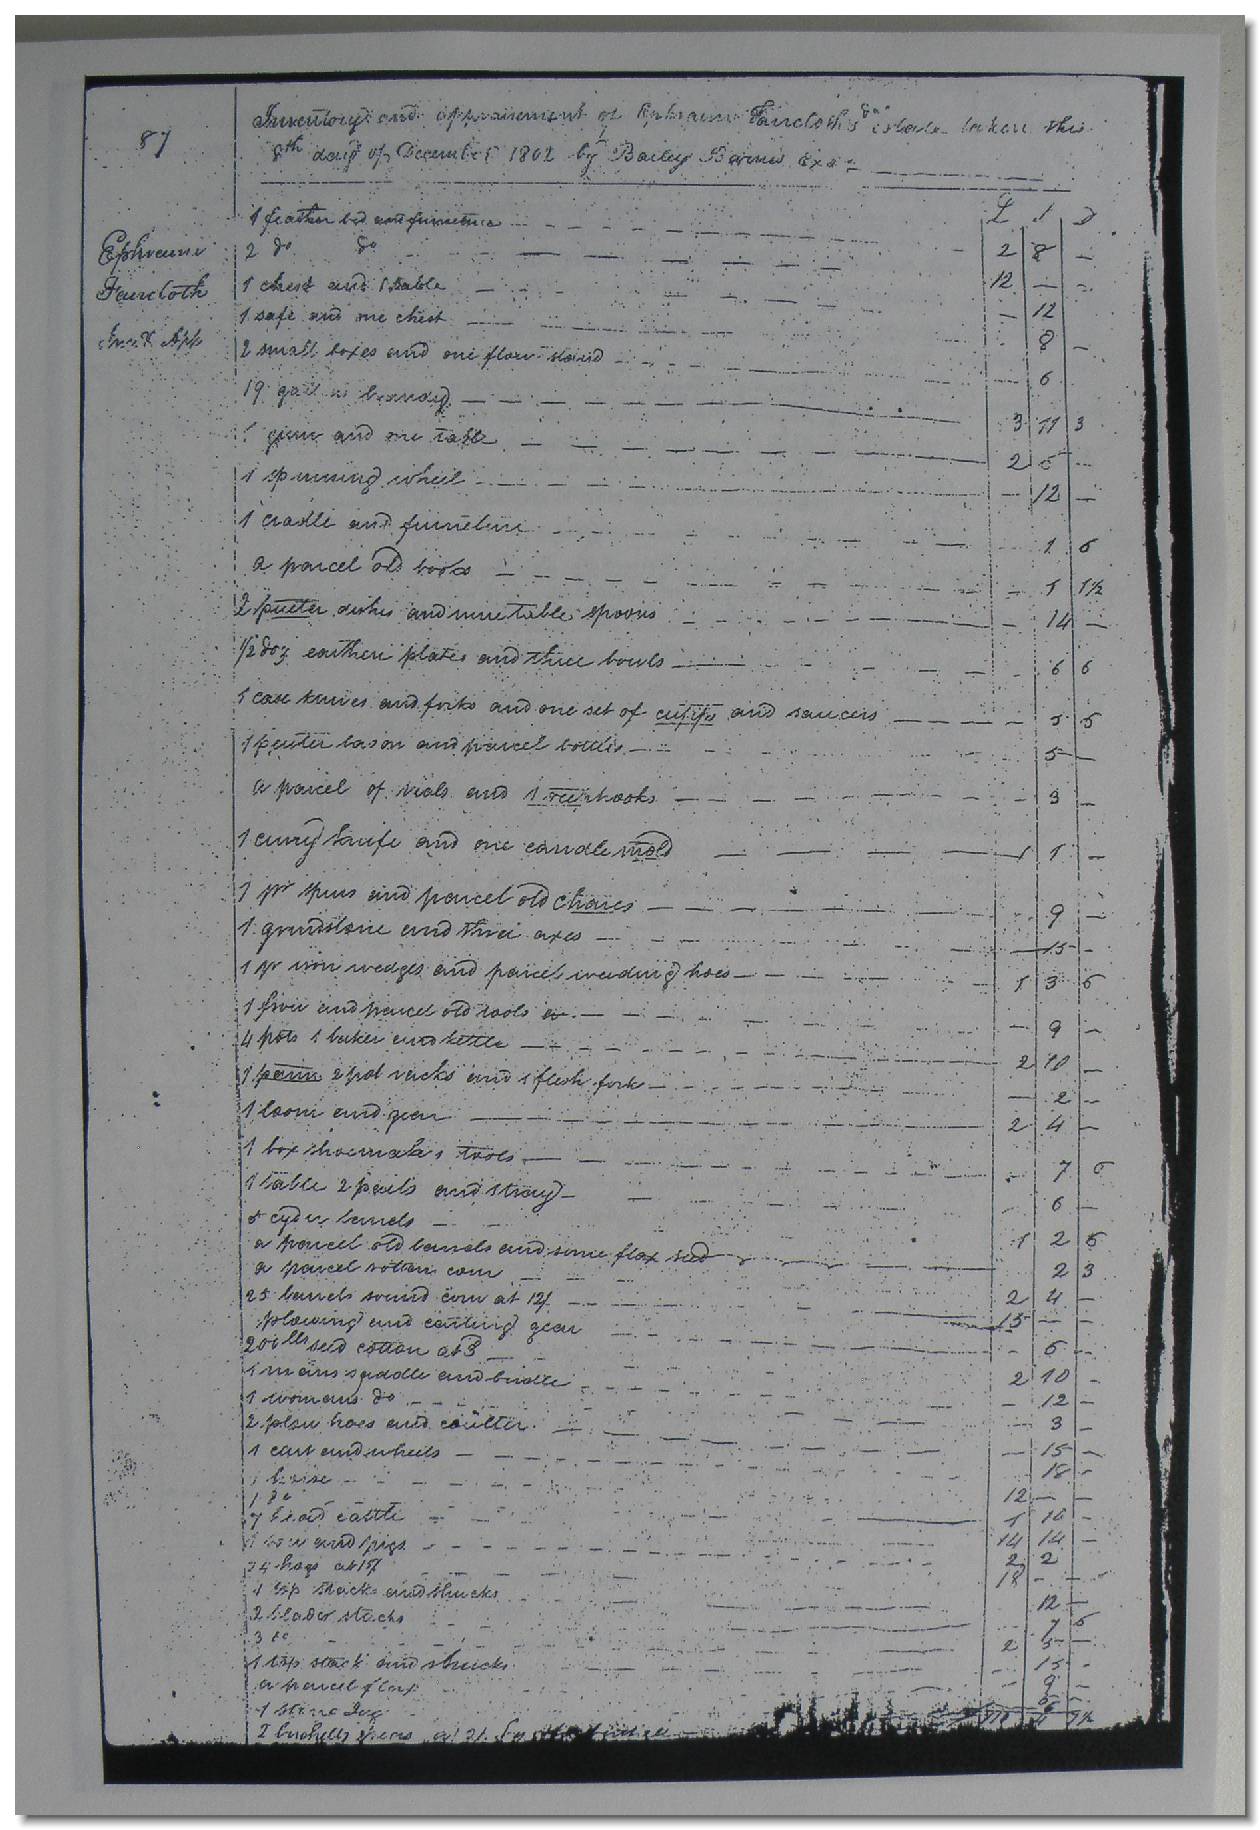 87
Inventory and appraisement of Ephraim Faircloth's dec estate taken this
8th day of December 1802 by Bailey Barnes Exo
Ephraim
Faircloth
Inv & App
£ S D
1 feather bed and furniture
2 do do 2 8 —
1 chest and 1 table 12 — —
1 safe and one chest — 12
2 small boxes and one flour stand 8 —
19 gall brandy 6
1 gun and one table 3 11 3
1 spinning wheel 2 5 —
1 cradle and furniture 12 —
a parcel old books 1 6
2 pueter dishes and nine table spoons 1 1½
14 —
1/2 doz earthen plates and three bowls 6 6
1 case knives and forks and one set of cupps and saucers 5 5
1 pewter bason and parcel bottles 5 —
a parcel of vials and 1 hooks 3 —
1 curry knife and one candle mold 1 1 —
1 pr spurs and parcel old chares 9 —
1 grindstone and three axes — 15 —
1 pr iron wedges and parcel weeding hoes 1 3 6
1 frow and parcel old tools — 9 —
4 pots 1 baker and kettle 2 10 —
1 pann 2 pot racks and 1 flesh fork — 2 —
1 loom and gear 2 4 —
1 box shoemakers tools 7 6
1 table 2 pails and 6 —
5 cyder barrels
a parcel old barrels and some flax seed 1 2 6
a parcel rotten corn 2 3
25 barrels sound corn at 12/ 2 4 —
plowing and carting gear 15 — —
200 lbs seed cotton at 3 6 —
1 mans saddle and bridle 2 10 —
1 womans do — 12 —
2 plow hoes and coulter — 3 —
1 cart and wheels — 15 —
1 horse 18 —
1 do 12 — —
7 head cattle 1 10 —
1 sow and pigs 14 14 —
24 hogs at 15/ 2 2
18 — —
1 top stack and shucks
2 blader stacks 12 —
3 do 7 6
2 5 —
1 top stack and shucks 15 —
a parcel flax 9 —
1 stone Jug
2 bushells at 2/